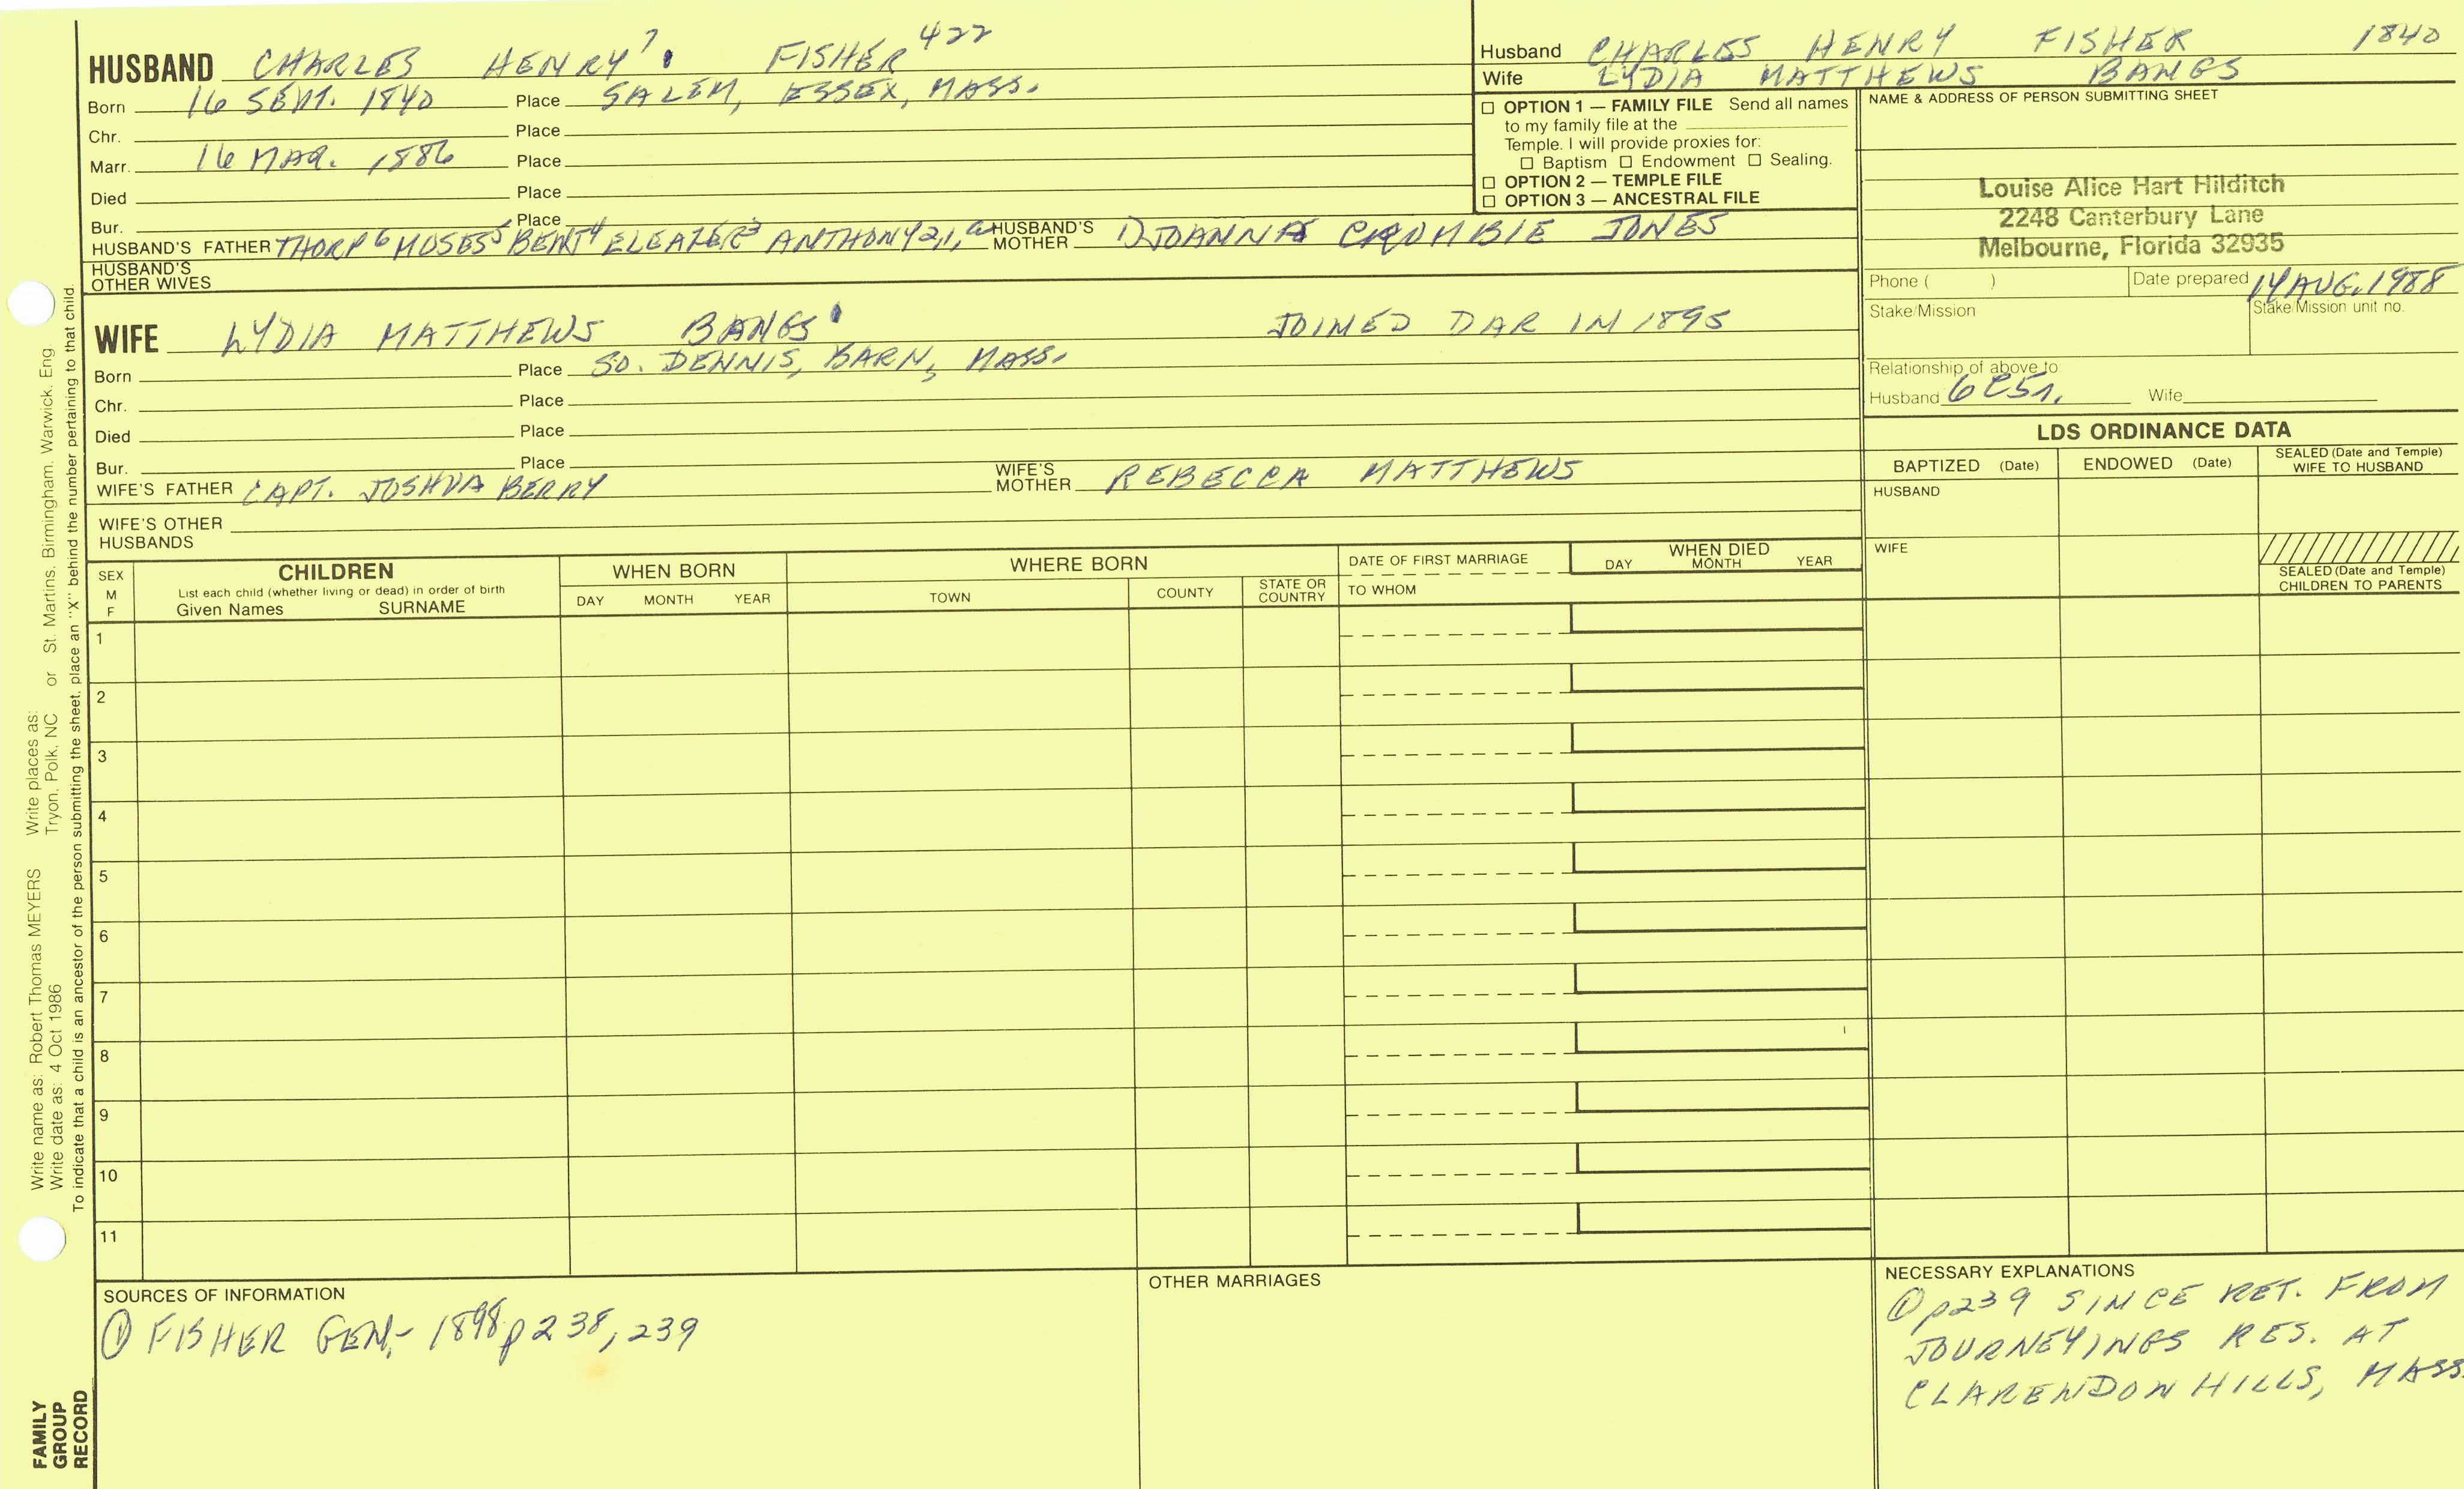 HUSBAND CHARLES HENRY 7. FISHER 422
Born 16 SEPT. 1840 Place SALEM, ESSEX, MASS.
Chr. Place
Marr. 16 MAR. 1886 Place
Died Place
Bur. Place
HUSBAND'S FATHER THORP 6 MOSES 5 BENT 4 ELEAZER 3 ANTHONY 2,1,a HUSBAND'S MOTHER 1) JOANNA CROMBIE JONES
HUSBAND'S OTHER WIVES
WIFE LYDIA MATTHEWS BANGS JOINED DAR IN 1895
Born Place SO. DENNIS, BARN, MASS.
Chr. Place
Died Place
Bur. Place
WIFE'S FATHER CAPT. JOSHUA BERRY WIFE'S MOTHER REBECCA MATTHEWS
WIFE'S OTHER HUSBANDS
Husband CHARLES HENRY FISHER 1840
Wife LYDIA MATTHEWS BANGS
☐ OPTION 1 — FAMILY FILE Send all names
to my family file at the
Temple. I will provide proxies for:
☐ Baptism ☐ Endowment ☐ Sealing.
☐ OPTION 2 — TEMPLE FILE
☐ OPTION 3 — ANCESTRAL FILE
NAME & ADDRESS OF PERSON SUBMITTING SHEET
Louise Alice Hart Hilditch
2248 Canterbury Lane
Melbourne, Florida 32935
Phone ( ) Date prepared 14 AUG. 1988
Stake/Mission Stake/Mission unit no.
Relationship of above to:
Husband 6C5r. Wife
LDS ORDINANCE DATA
BAPTIZED (Date) ENDOWED (Date) SEALED (Date and Temple) WIFE TO HUSBAND
HUSBAND
WIFE
SEALED (Date and Temple)
CHILDREN TO PARENTS
SEX
M
F
CHILDREN
List each child (whether living or dead) in order of birth
Given Names SURNAME
WHEN BORN
DAY MONTH YEAR
WHERE BORN
TOWN COUNTY STATE OR COUNTRY
DATE OF FIRST MARRIAGE
TO WHOM
WHEN DIED
DAY MONTH YEAR
1
2
3
4
5
6
7
8
9
10
11
SOURCES OF INFORMATION
① FISHER GEN.- 1898 p 238, 239
OTHER MARRIAGES
NECESSARY EXPLANATIONS
① p239 SINCE RET. FROM
JOURNEYINGS RES. AT
CLARENDON HILLS, MASS.
Write name as: Robert Thomas MEYERS Write places as:
Write date as: 4 Oct 1986 Tryon, Polk, NC or St. Martins, Birmingham, Warwick, Eng
To indicate that a child is an ancestor of the person submitting the sheet, place an "X" behind the number pertaining to that child.
FAMILY
GROUP
RECORD